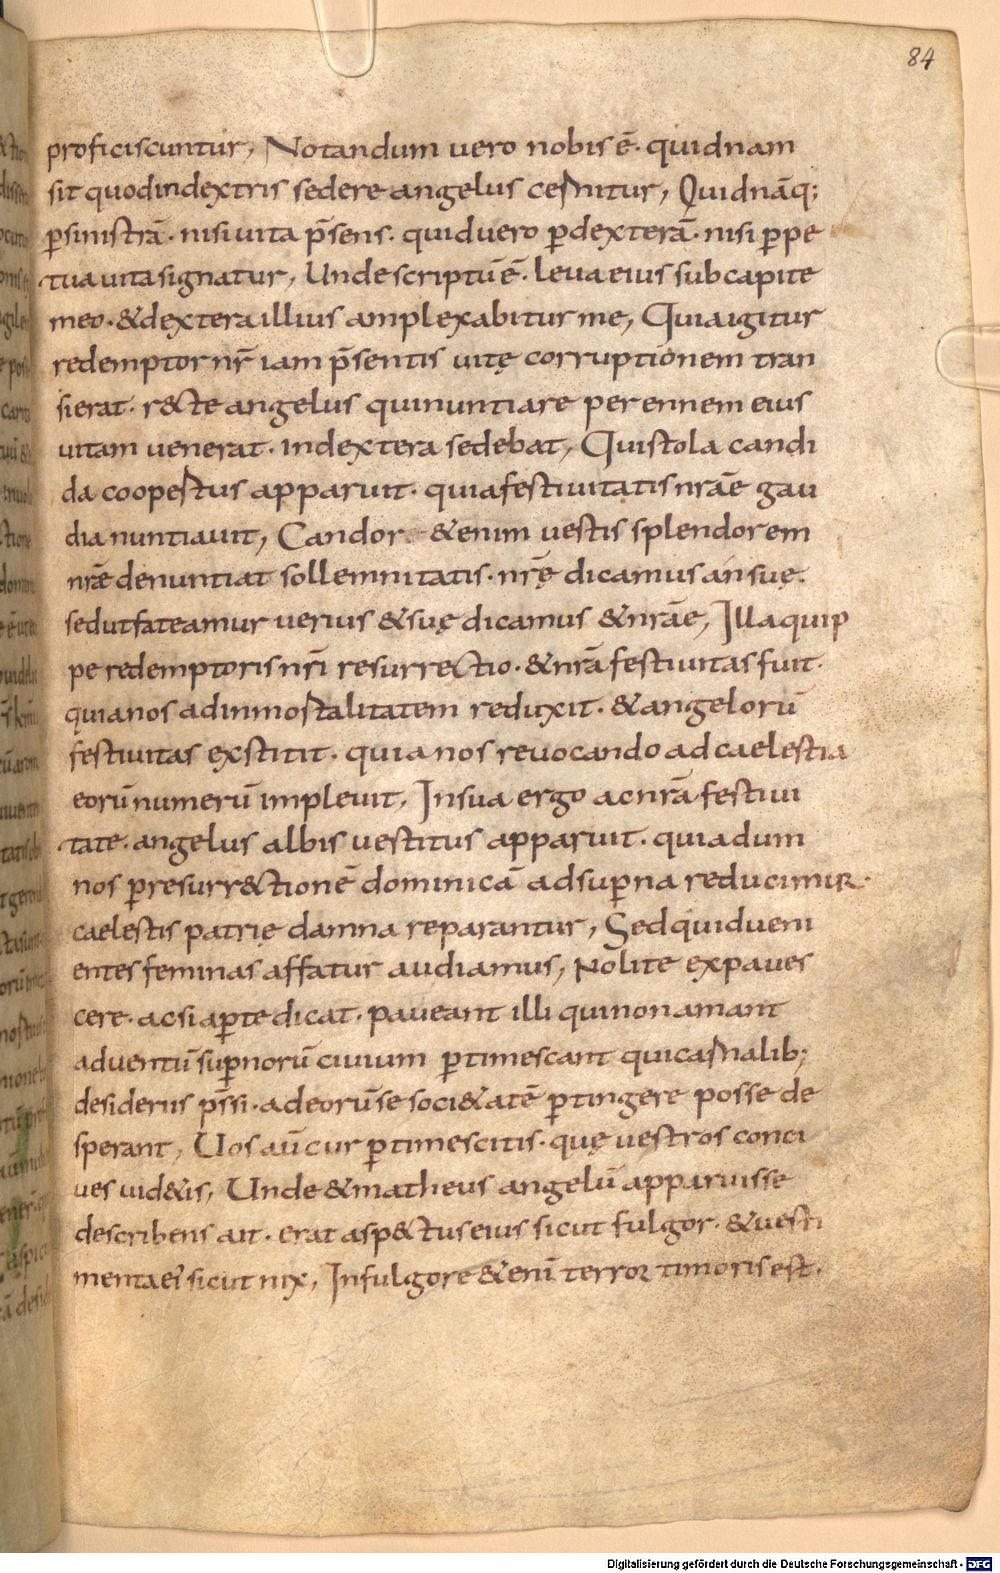 84
proficiscuntur, Notandum uero nobis ē. quidnam
sit quod in dextris sedere angelus cernitur, Quid nāq;
ꝑ sinistrā. nisi uita p̄sens. quid uero ꝑ dexterā. nisi ꝑpe
tua uita signatur, Unde scriptū ē. leua eius sub capite
meo. & dextera illius amplexabitur me, Quia igitur
redemptor nr̄ iam p̄sentis uitę corruptionem tran
sierat. r&cte angelus qui nuntiare perennem eius
uitam uenerat. in dextera sedebat, Qui stola candi
da coopertus apparuit. quia festiuitatis nrāe gau
dia nuntiauit, Candor &enim uestis splendorem
nrǣ denuntiat sollemnitatis. nrę̄ dicamus án suę.
sed ut fateamur uerius & suę dicamus & nrāe, Illa quip
pe redemptoris nrī resurrectio. & nrā festiuitas fuit.
quia nos ad inmortalitatem reduxit. & angelorū
festiuitas exstitit. quia nos reuocando ad caelestia
eorū numerū impleuit, In sua ergo ac nrā festiui
tate. angelus albis uestitus apparuit. quia dum
nos ꝑ resurr&ctionē dominicā ad suꝑna reducimur.
caelestis patrię damna reparantur, Sed quid ueni
entes feminas affatur audiamus, Nolite expaues
cere. ac si aꝑte dicat. paueant illi qui non amant
aduentū suꝑnorū ciuium ꝑtimescant qui carnalib;
desideriis p̄ssi. ad eorū se soci&atē ꝑtingere posse de
sperant, Uos aū cur ꝑtimescitis. quę uestros conci
ues uid&is, Unde & matheus angelū apparuisse
describens ait. erat asp&ctus eius sicut fulgor. & uesti
menta ei' sicut nix, In fulgore &enī terror timoris est.
Digitalisierung gefördert durch die Deutsche Forschungsgemeinschaft - DFG